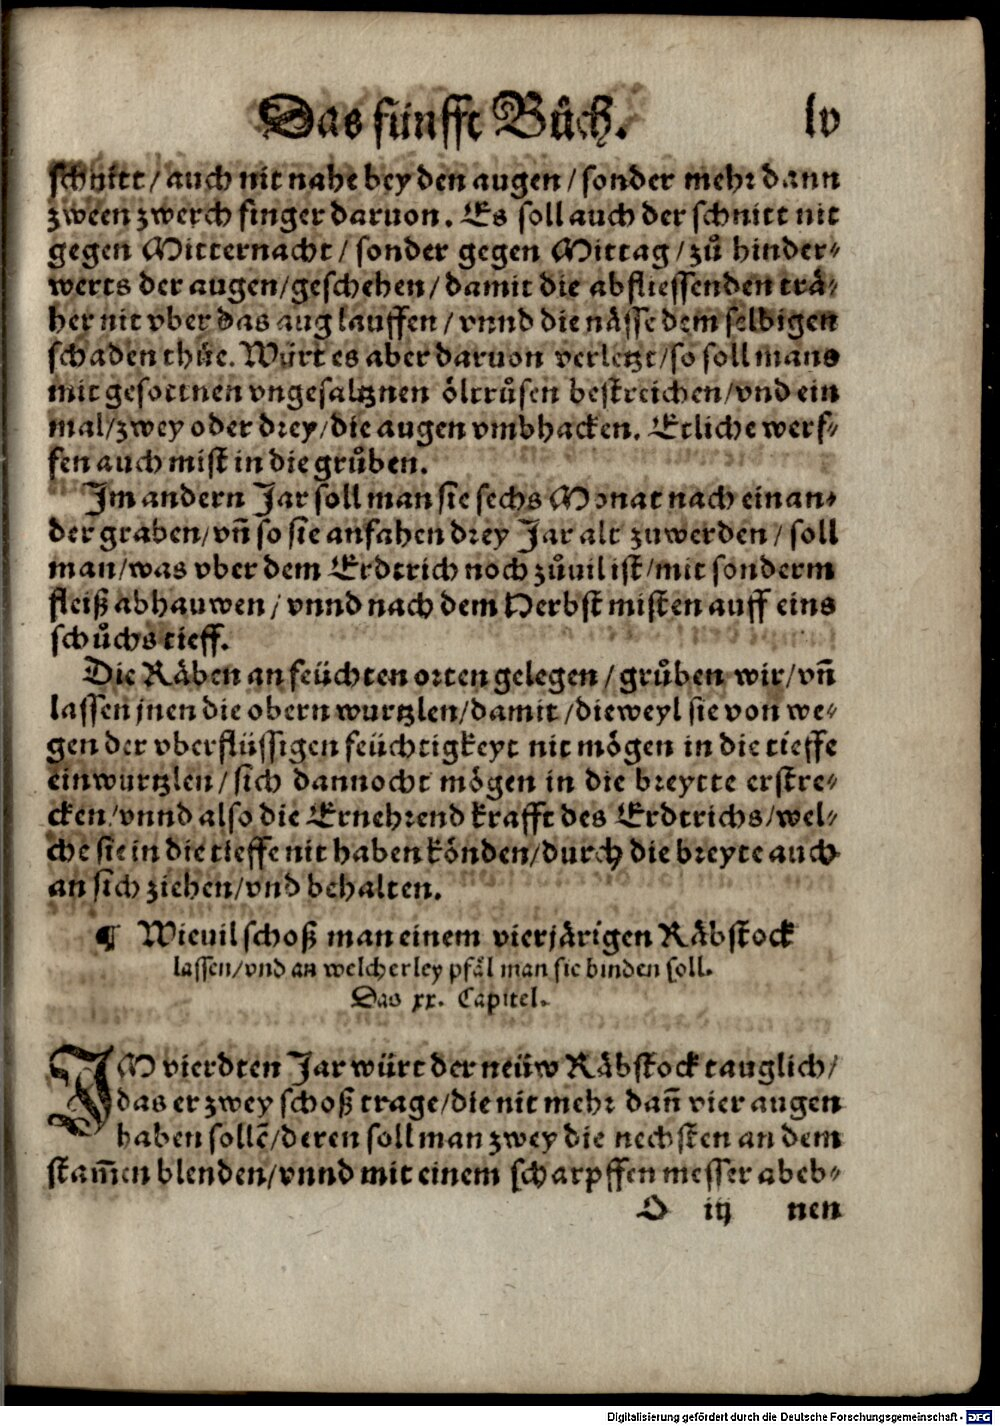 Das fünfft Bůch. lv
schnitt / auch nit nahe bey den augen / sonder mehr dann
zween zwerch finger daruon. Es soll auch der schnitt nit
gegen Mitternacht / sonder gegen Mittag / zů hinder⸗
werts der augen / geschehen / damit die abfliessenden trä⸗
her nit vber das aug lauffen / vnnd die nässe dem selbigen
schaden thüe. Würt es aber daruon verletzt / so soll mans
mit gesottnen vngesaltznen öltrůsen bestreichen / vnd ein
mal / zwey oder drey / die augen vmbhacken. Etliche werf⸗
fen auch mist in die grůben.
Im andern Jar soll man sie sechs Monat nach einan⸗
der graben / vñ so sie anfahen drey Jar alt zuwerden / soll
man / was vber dem Erdtrich noch zůuil ist / mit sonderm
fleiß abhauwen / vnnd nach dem Herbst misten auff eins
schůchs tieff.
Die Räben an feüchten orten gelegen / grůben wir / vñ
lassen jnen die obern wurtzlen / damit / dieweyl sie von we⸗
gen der vberflüssigen feüchtigkeyt nit mögen in die tieffe
einwurtzlen / sich dannocht mögen in die breytte erstre⸗
cken / vnnd also die Ernehrend krafft des Erdtrichs / wel⸗
che sie in die tieffe nit haben könden / durch die breyte auch
an sich ziehen / vnd behalten.
¶ Wieuil schoß man einem vierjärigen Räbstock
lassen / vnd an welcherley pfäl man sie binden soll.
Das xx. Capitel.
IM vierdten Jar würt der neüw Räbstock tauglich /
das er zwey schoß trage / die nit mehr dañ vier augen
haben sollē / deren soll man zwey die nechsten an dem
stam̄en blenden / vnnd mit einem scharpffen messer abeb⸗
O iij nen
Digitalisierung gefördert durch die Deutsche Forschungsgemeinschaft - DFG